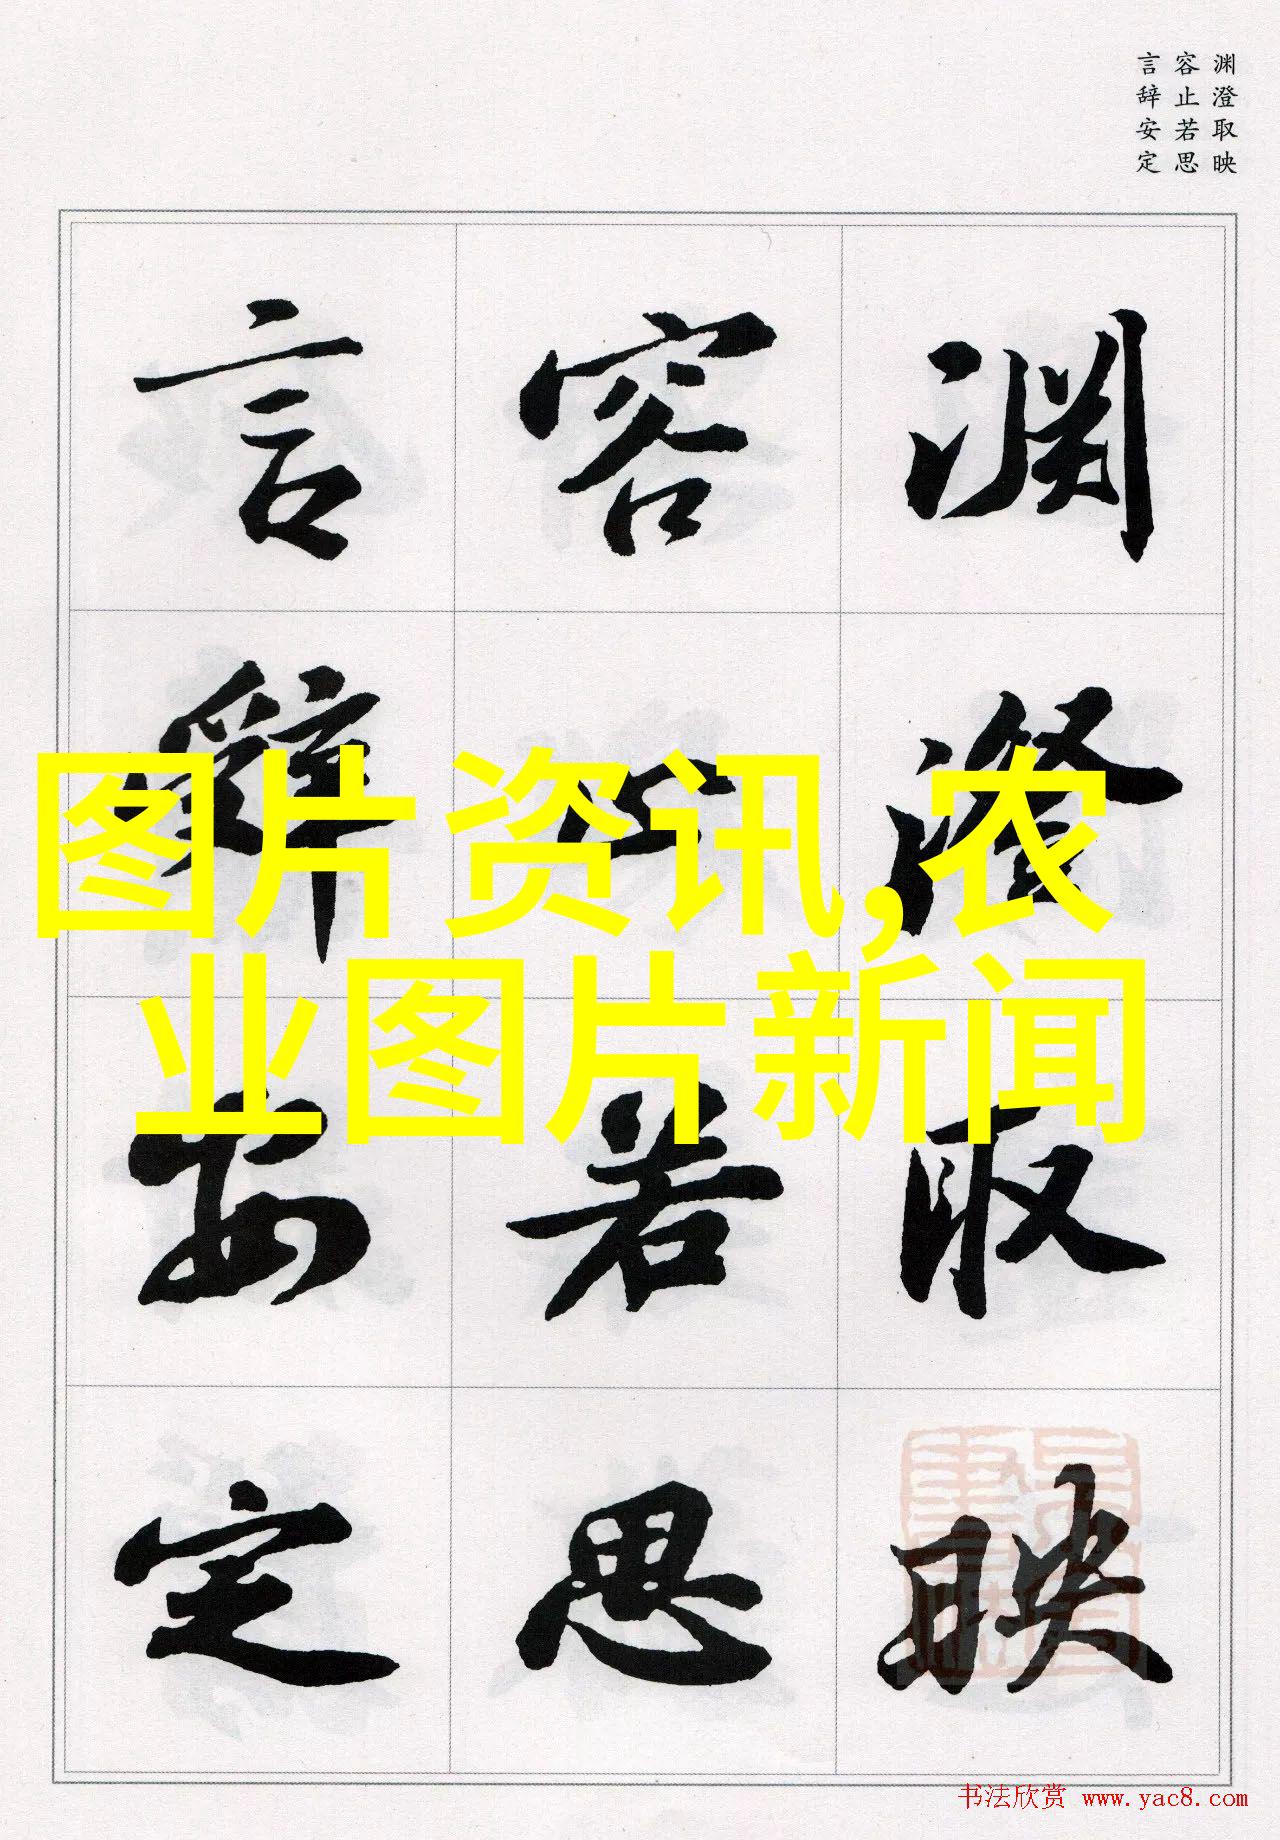 渊澄取映
容止若思
言辞安定
渊澄取映
容止若思
言辞安定
图片资讯,农
业图片新闻
书法欣赏 www.yac8.com